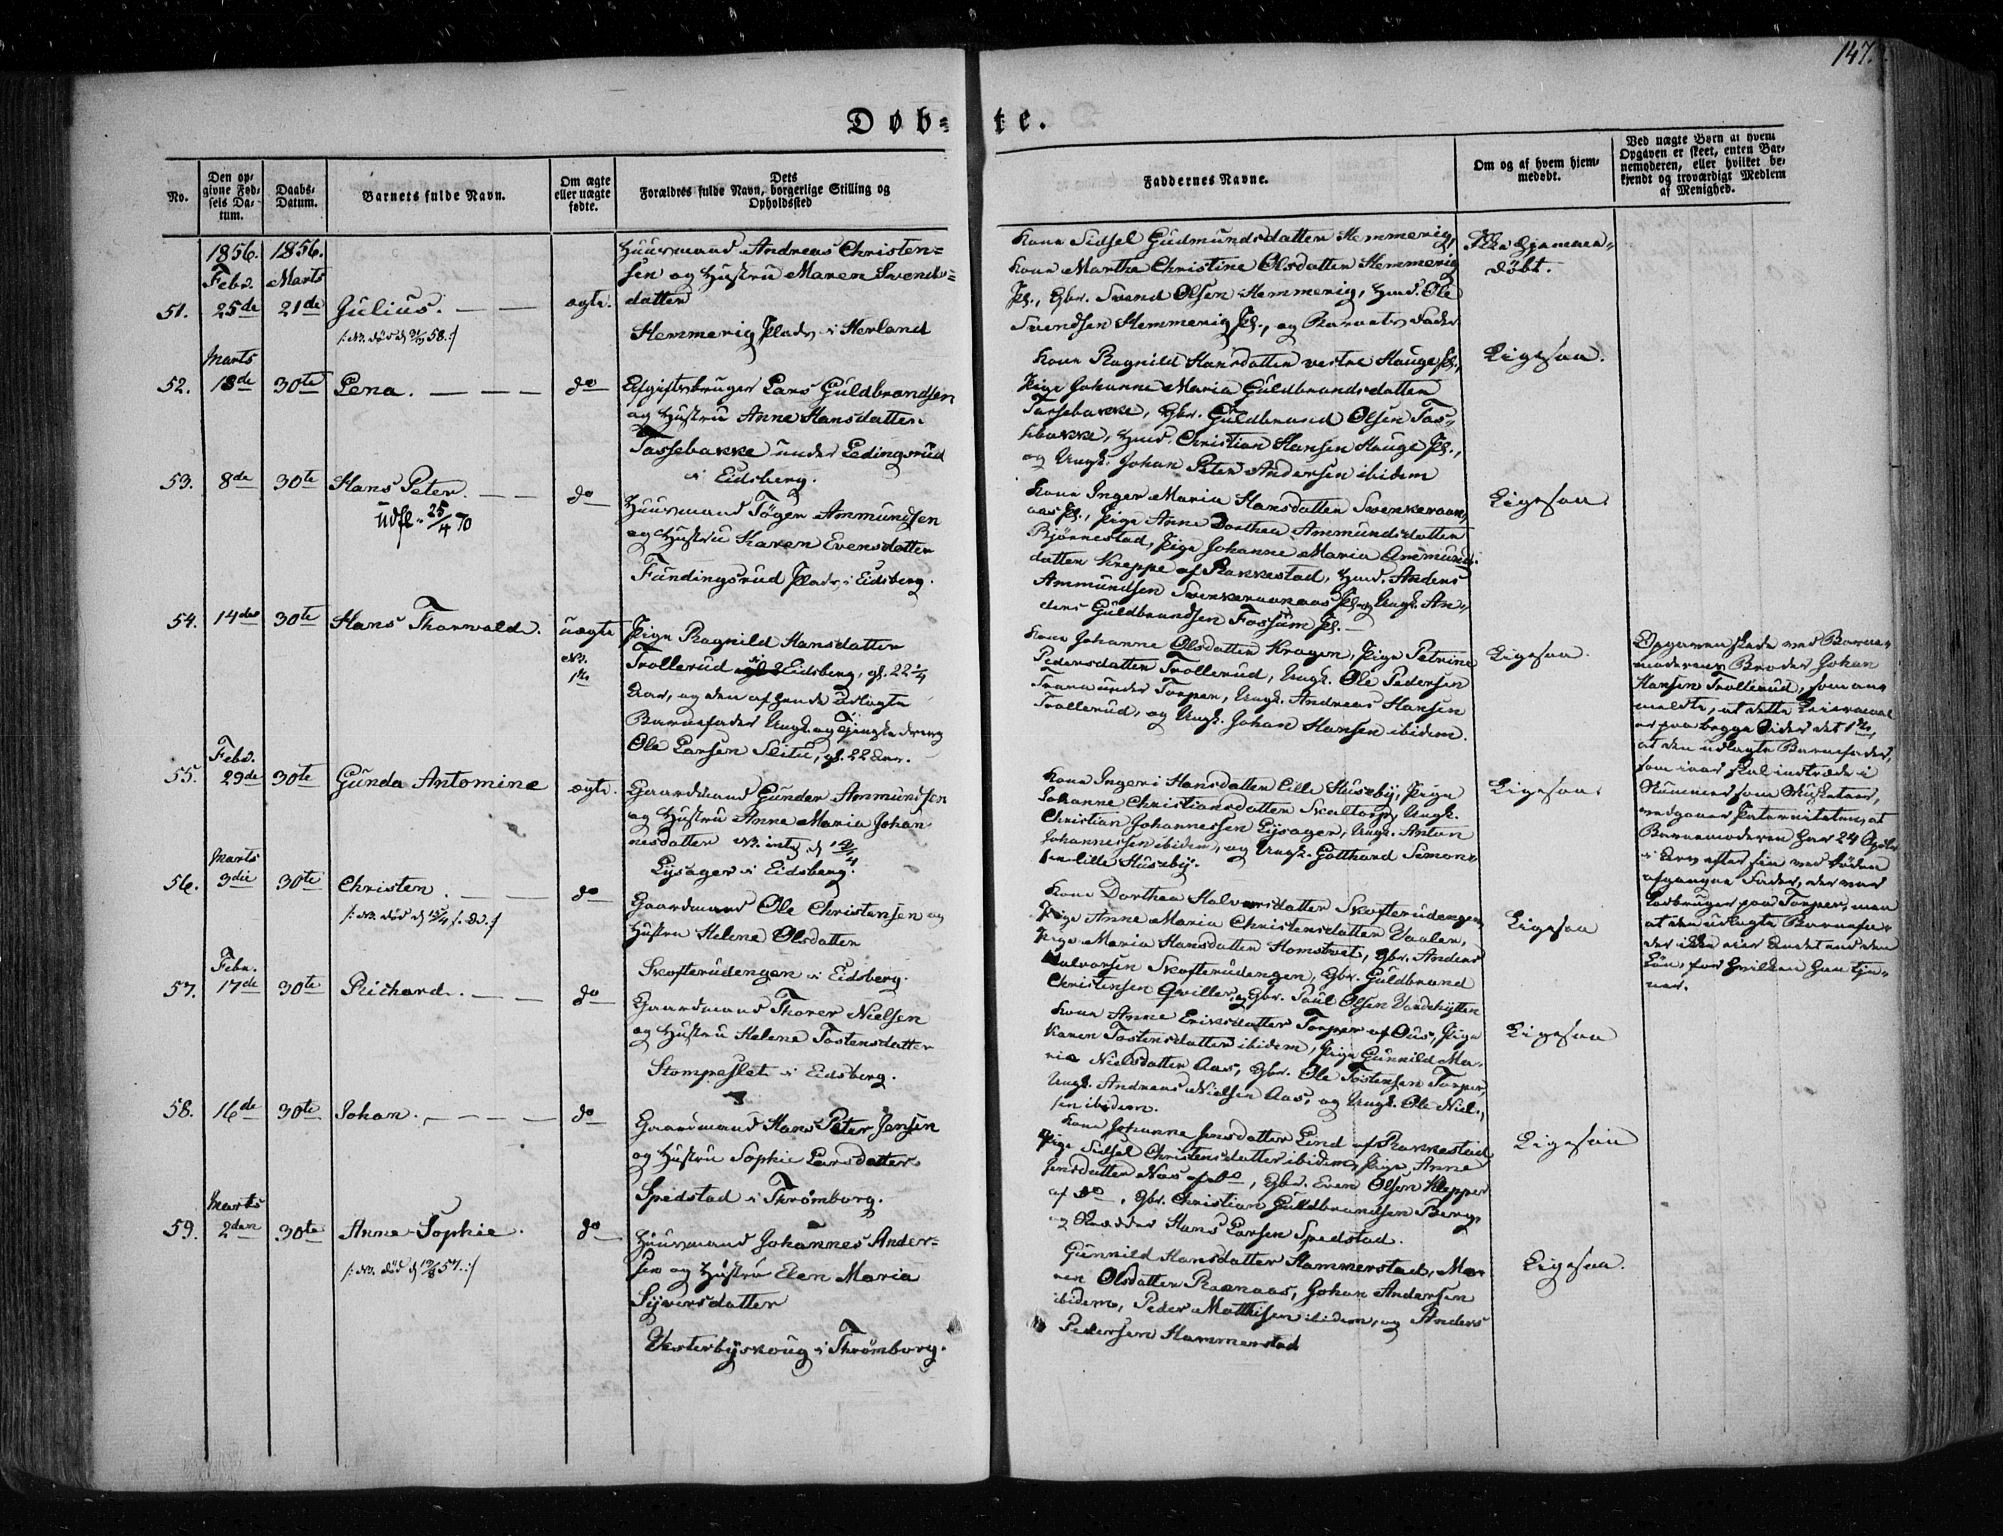 147.
Døb-te.
No.
Den op-
givne Fød-
sels Da-
tum.
Daabs-
Datum.
Barnets fulde Navn.
Om ægte
eller uægte
fødte.
Dets
Forældres fulde Navn, borgerlige Stilling og
Opholdssted
Faddernes Navne.
Om og af hvem hjem-
medøbt.
Ved uægte Børn at hvem
Opgaven er skeet, enten Bar-
nemoderen, eller hvilket be-
kjendt og troværdigt Medlem
af Menighed.
1856. 1856.
Febr. Marts
51. 25de 21de Julius. ægte.
/: NB. død d 58. :/
Huusmand Andreas Christen-
sen og Hustru Maren Svends-
datter
Hemmerig Plads i Herland
Kone Sidsel Gudmundsdatter Hemmerig,
Kone Marthe Christine Olsdatter Hemmerig
Pl., Gbr. Svend Olsen Hemmerig, Hmd. Ole
Svendsen Hemmerig Pl., og Barnets Fader
Ikke Hjemme-
døbt.
Marts
52. 18de 30te Lena. do
Lars Guldbrandsen
og Hustru Anne Hansdatter
Tassebakke under Ledingsrud
i Eidsberg.
Kone Ragnild Hansdatter vestre Hauge Pl.,
Pige Johanne Maria Guldbrandsdatter
Tassebakke, Gbr. Guldbrand Olsen Tas-
sebakke, Hmd. Christian Hansen Hauge Pl.,
og Ungk. Johan Peter Andersen ibidem
Ligesaa.
53. 8de 30te Hans Peter. do
Udfl. 25/4 70
Huusmand Töger Ammundsen
og Hustru Karen Evensdatter
Fundingsrud Plads i Eidsberg.
Kone Inger Maria Hansdatter
aas Pl., Pige Anne Dorthea Ammundsdatter
Bjørnestad, Pige Johanne Maria Ammunds-
datter Kreppe af Rakkestad, Hmd. Anders
Ammundsen Pl. og Ungk. An-
ders Guldbrandsen Fossum Pl.
Ligesaa.
54. 14de 30te Hans Thorvald. uægte
NB.
1ste
Pige Ragnild Hansdatter
Trollerud i Eidsberg, gl. 22 1/4
Aar, og den af hende udlagte
Barnefader Ungk. og Tjenestedreng
Ole Larsen Slitu, gl. 22 Aar.
Kone Johanne Olsdatter Kragen, Pige Petrine
Pedersdatter Trollerud, Ungk. Ole Pedersen
Trana under Torper, Ungk. Andreas Hansen
Trollerud, og Ungk. Johan Hansen ibidem.
Ligesaa.
Opgaven skede ved Barne-
moderens Broder Johan
Hansen Trollerud, som an-
meldte, at dette Leiermaal
er paa begge Sider det 1ste,
at den udlagte Barnefader,
som i aar skal indtræde i
Nummer som Musketeer,
vedgaaer Paterniteten, at
Barnemoderen har 24
i Arv efter sin ved Døden
afgangne Fader, der var
paa Torper, men
at den udlagte Barnefa-
der ikke eier Andet end den
Løn, for hvilken han tje-
ner.
Febr.
55. 29de 30te Gunda Antomine ægte.
Gaardmand Gunder Ammundsen
og Hustru Anne Maria Johan-
nesdatter NB. int. d 12/4
Lysager i Eidsberg.
Kone Inger Hansdatter Lille Huseby, Pige
Johanne Christiansdatter Skaltorp, Ungk.
Christian Johannessen Lysager, Ungk. Anton
Johannessen ibidem, og Ungk. Gotthard Simon-
sen Lille Huseby.
Ligesaa.
Marts
56. 3die 30te Christen. do
/: NB. død d 15/4 f. A. :/
Gaardmand Ole Christensen og
Hustru Helene Olsdatter
Skofterudengen i Eidsberg.
Kone Dorthea Halvorsdatter Skofterudengen,
Pige Anne Maria Christensdatter Vaaler,
Pige Maria Hansdatter Homstvet, Gbr. Anders
Halvorsen Skofterudengen, Gbr. Guldbrand
Christensen Qviller, og Gbr. Paul Olsen Vardehytten
Ligesaa
Febr.
57. 17de 30te Richard. do
Gaardmand Thorer Nielsen
og Hustru Helene Tostensdatter
Stompeslet i Eidsberg.
Kone Anne Eriksdatter Torper af Øus, Pige
Karen Tostensdatter ibidem, Pige Gunnild Ma-
ria Nielsdatter Aas, Gbr. Ole Tostensen Torper,
Ungk. Andreas Nielsen Aas, og Ungk. Ole Niel-
sen ibidem.
Ligesaa
58. 16de 30te Johan. do
Gaardmand Hans Peter Jensen
og Hustru Sophie Larsdatter
Spedstad i Thrømborg.
Kone Johanne Jensdatter Lind af Rakkestad,
Pige Sidsel Christensdatter ibidem, Pige Anne
Jensdatter Næs af do, Gbr. Even Olsen Klepper
af do, Gbr. Christian Guldbrandsen Berg,
og Skrædder Hans Larsen Spedstad.
Ligesaa
Marts
59. 2den 30te Anne Sophie. do
/: NB. død d 19/8 57. :/
Huusmand Johannes Ander-
sen og Hustru Elen Maria
Syversdatter
Vesterbyskoug i Thrømborg.
Gunnild Hansdatter Hammerstad, Ma-
ren Olsdatter Ramaas, Johan Andersen
ibidem, Peder Matthisen ibidem, og Anders
Pedersen Hammerstad
Ligesaa.